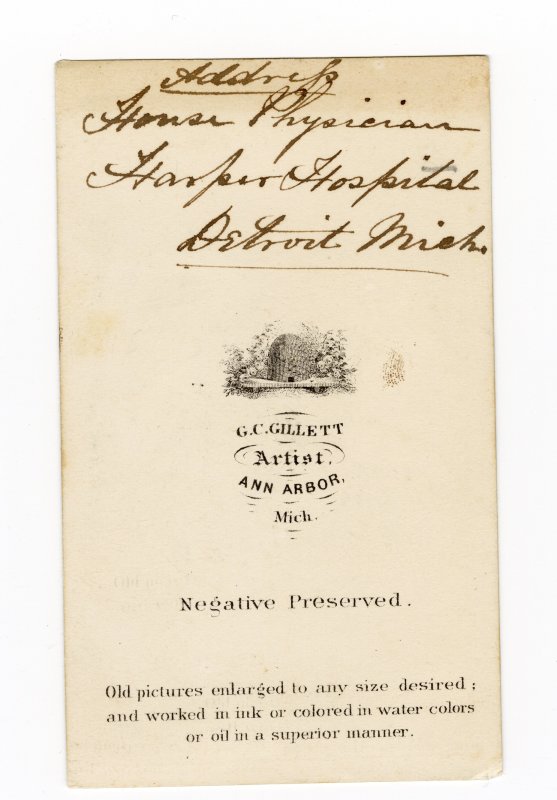 Address
House Physician
Harper Hospital
Detroit Mich.
G. C. GILLETT
Artist,
ANN ARBOR,
Mich.
Negative Preserved.
Old pictures enlarged to any size desired;
and worked in ink or colored in water colors
or oil in a superior manner.